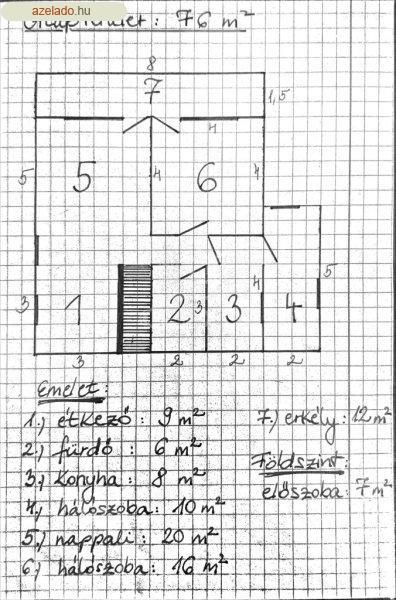 azelado.hu
Alapterület: 76 m²
8
7
1,5
4
5
5
4
6
4
3
1
2
3
3
4
4
5
3
2
2
2
Emelet:
1.) étkező: 9 m²
2.) fürdő: 6 m²
3.) konyha: 8 m²
4.) hálószoba: 10 m²
5.) nappali: 20 m²
6.) hálószoba: 16 m²
7.) erkély: 12 m²
Földszint:
előszoba: 7 m²